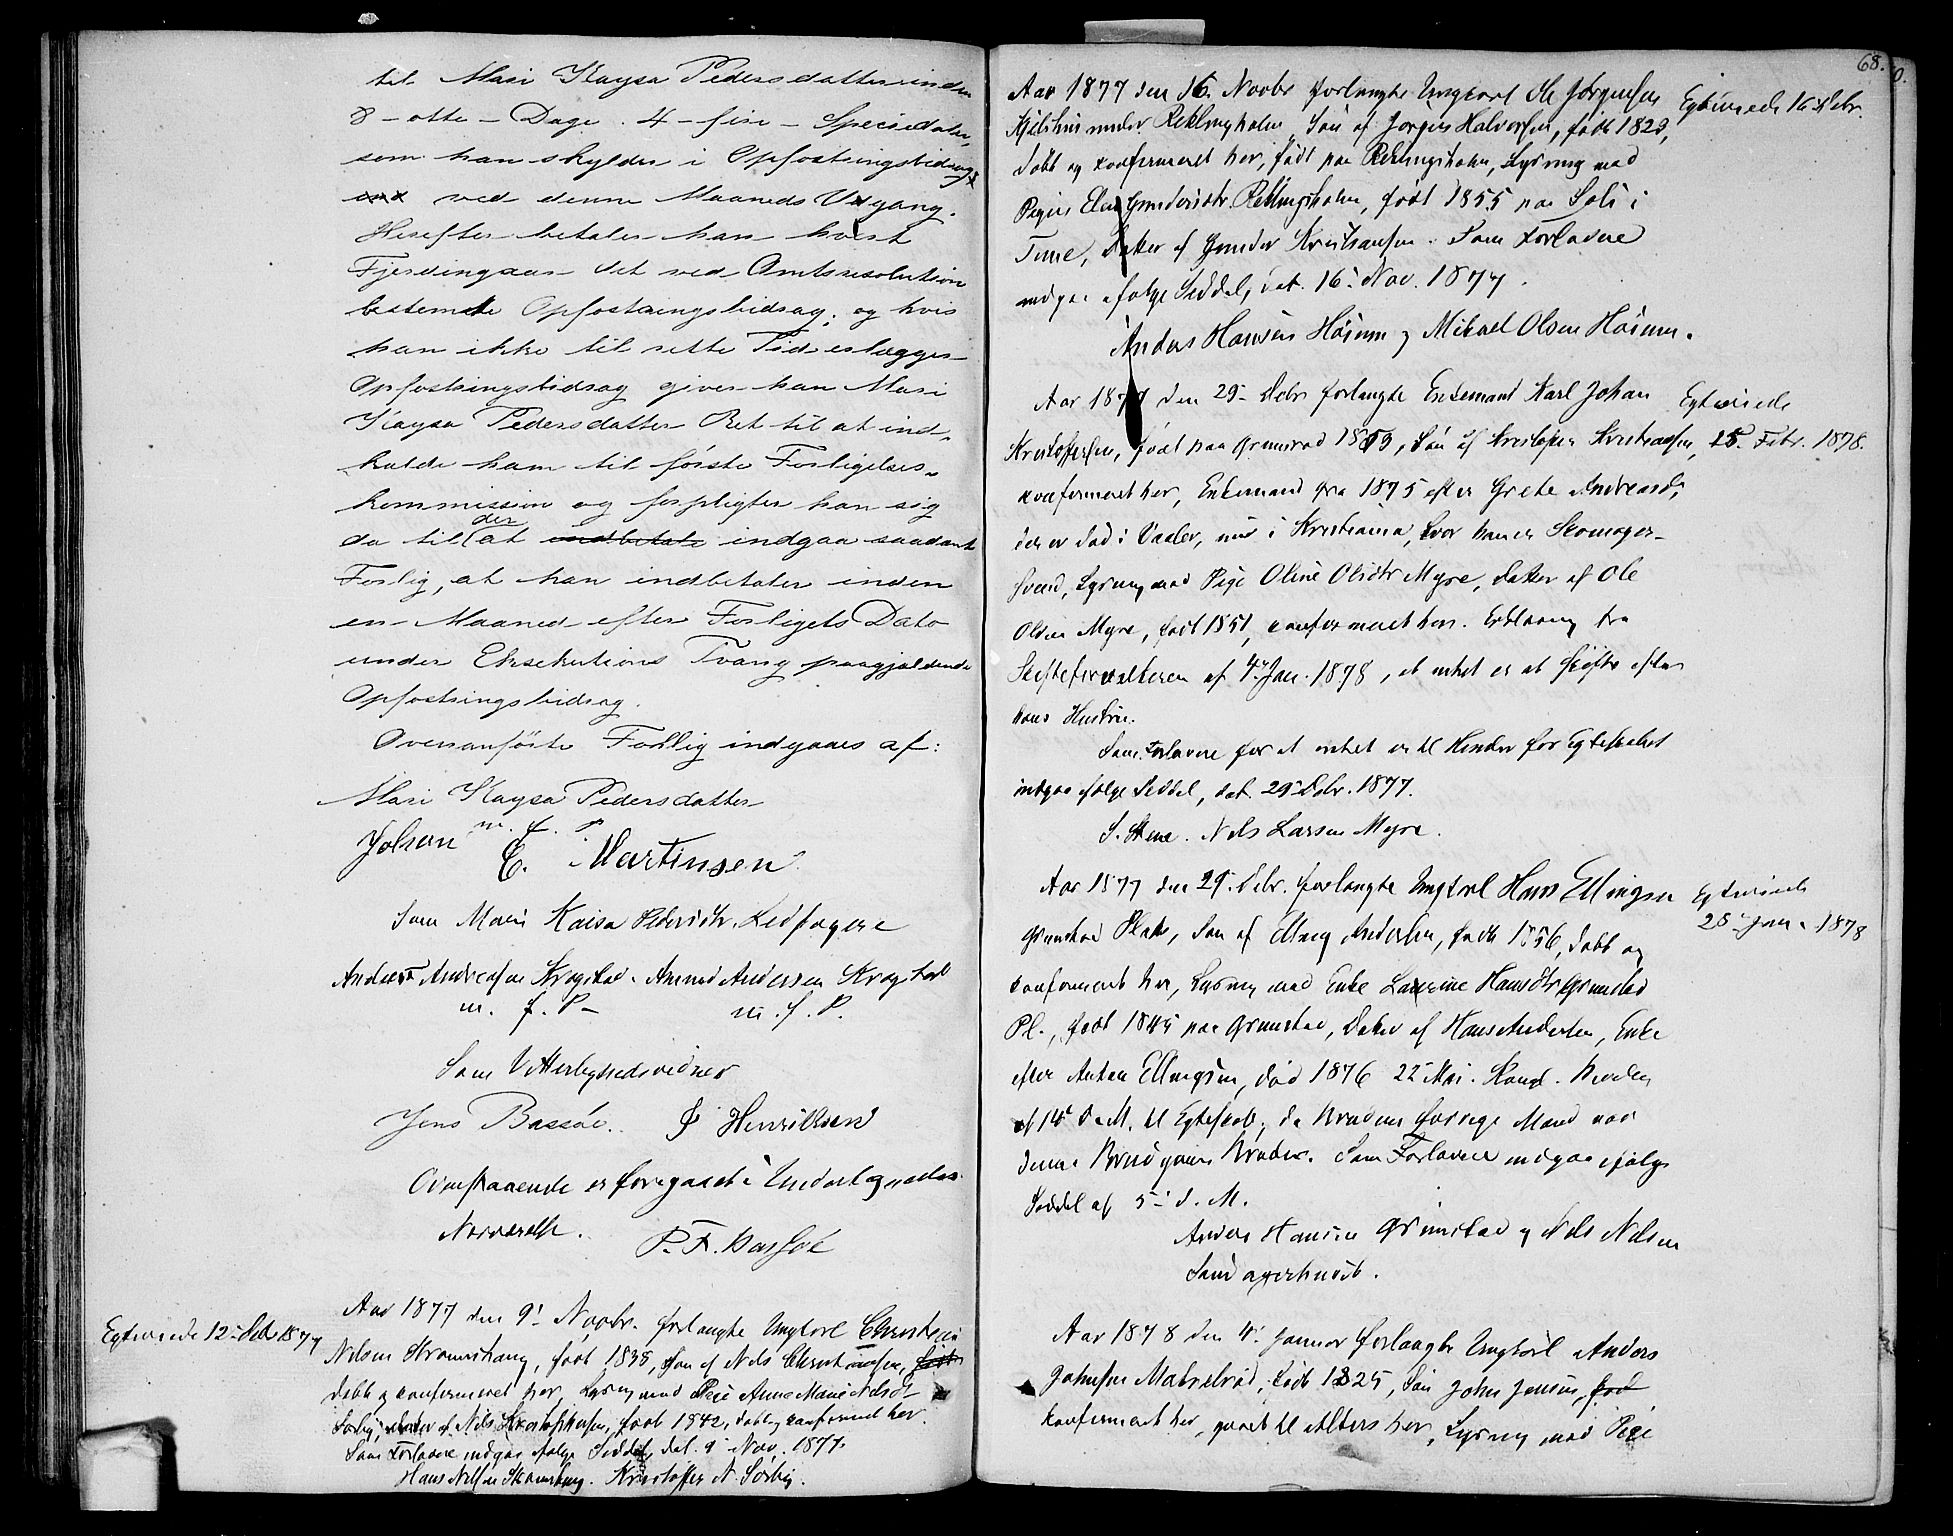 til Mari Kaysa Pedersdatter inden
8 - otte - Dage . 4 - fire - Speciedaler,
som han skylder i Opfostringsbidrag
ved denne Maaneds Udgang.
Herefter betaler han hvert
Fjerdingaar det ved Amtsresolution
bestemte Opfostringsbidrag; og hvis
han ikke til rette Tid erlægger
Opfostringsbidrag giver han Mari
Kaysa Pedersdatter Ret til at ind-
kalde ham til første Forligelses-
kommission og forpligter han sig
da til der at indbetale indgaa saadant
Forlig, at han indbetaler inden
en Maaned efter Forligets Dato
under Eksekutions Tvang paagjældende
Opfostringsbidrag.
Overanførte Forlig indgaaes af:
Mari Kaysa Pedersdatter
m. f. P.
Johan E. Martinsen
Som Maris Kaisa Pedersdtr. Ledsagere
Anders Andreasen Kragstad. Amund Andersen Kragstad
m. f. P. m. f. P.
Som Vitterlighedsvidner
Jens Bassøe. J Henriksen
Ovenstaaende er foregaaet i Undertegnedes
Nærværelse.
P. F. Bassøe
Egteviede 12- Debr 1877
Aar 1877 den 9' Novbr. forlangte Ungkarl Christian
Nilsen, født 1838, Søn af Nils Christiansen,
døbt og konfirmeret her, Lysning med Pige Anne Marie Nilsdtr
Sørby, Datter af Nils Kristoffersen, født 1842, døbt og konfirmeret her.
Som Forlovere indgaa ifølge Seddel, dat. 9' Nov. 1877.
Hans Nilsen. Kristoffer N. Sørby.
68.
Aar 1877 den 16. Novbr forlangte Ungkarl Ole Jørgensen
Egteviede 16 Debr.
under Reklingholm, Søn af Jørgen Halvorsen, født 1823,
døbt og konfirmeret her, født paa Reklingsholm, Lysning med
Pigen Elen Gundersdtr. Reklingsholm, født 1855 paa Soli i
Tune, Datter af Gunder Kristiansen. Som Forlovere
indgaa ifølge Seddel, dat. 16' Nov. 1877.
Anders Hansen Høium og Mikael Olsen Høium.
Aar 1877 den 29- Debr forlangte Enkemand Karl Johan
Egteviede
Kristoffersen, født paa Grimsrød, Søn af Kristofer Kristiansen,
25. Febr. 1878.
konfirmeret her, Enkemand fra 1875 efter Grete Andreasd,
der er død i Vaaler, nu i Kristiania, hvor han er Skomager-
svend, Lysning med Pige Oline Olsdtr Myre, Datter af Ole
Olsen Myre, født 1851, konfirmeret her. Erklæring fra
Skifteforvalteren af 4' Jan. 1878, at intet er at skifte efter
hans Hustru.
Som Forlovere for at intet er til Hinder for Egteskabet
indgaa ifølge Seddel, dat. 29' Debr. 1877.
S. Stene. Nils Larsen Myre.
Aar 1877 den 29. Debr. forlangte Ungkarl Hans Ellingsen
Egteviede
28- Jan. 1878
Grimstad Plads, Søn af Elling Andersen, født 1856, døbt og
konfirmeret her, Lysning med Enke Laurine Hansdtr Grimstad
Pl., født 1845 paa Grimstad, Datter af Hans Andersen, Enke
efter Anton Ellingsen, død 1876 22' Mai. Kongl.
af 14' d. M. til Egteskab, da Brudens forrige Mand var
denne Brudgoms Broder. Som Forlovere indgaa ifølge
Seddel af 5' d. M.
Anders Hansen Grimstad og Nils Nilsen
Sandagerhuset.
Aar 1878 den 4' Januar forlangte Ungkarl Anders
Johnsen, født 1825, Søn John Jensen, født
konfirmeret her, gaaet til Alters her, Lysning med Pige